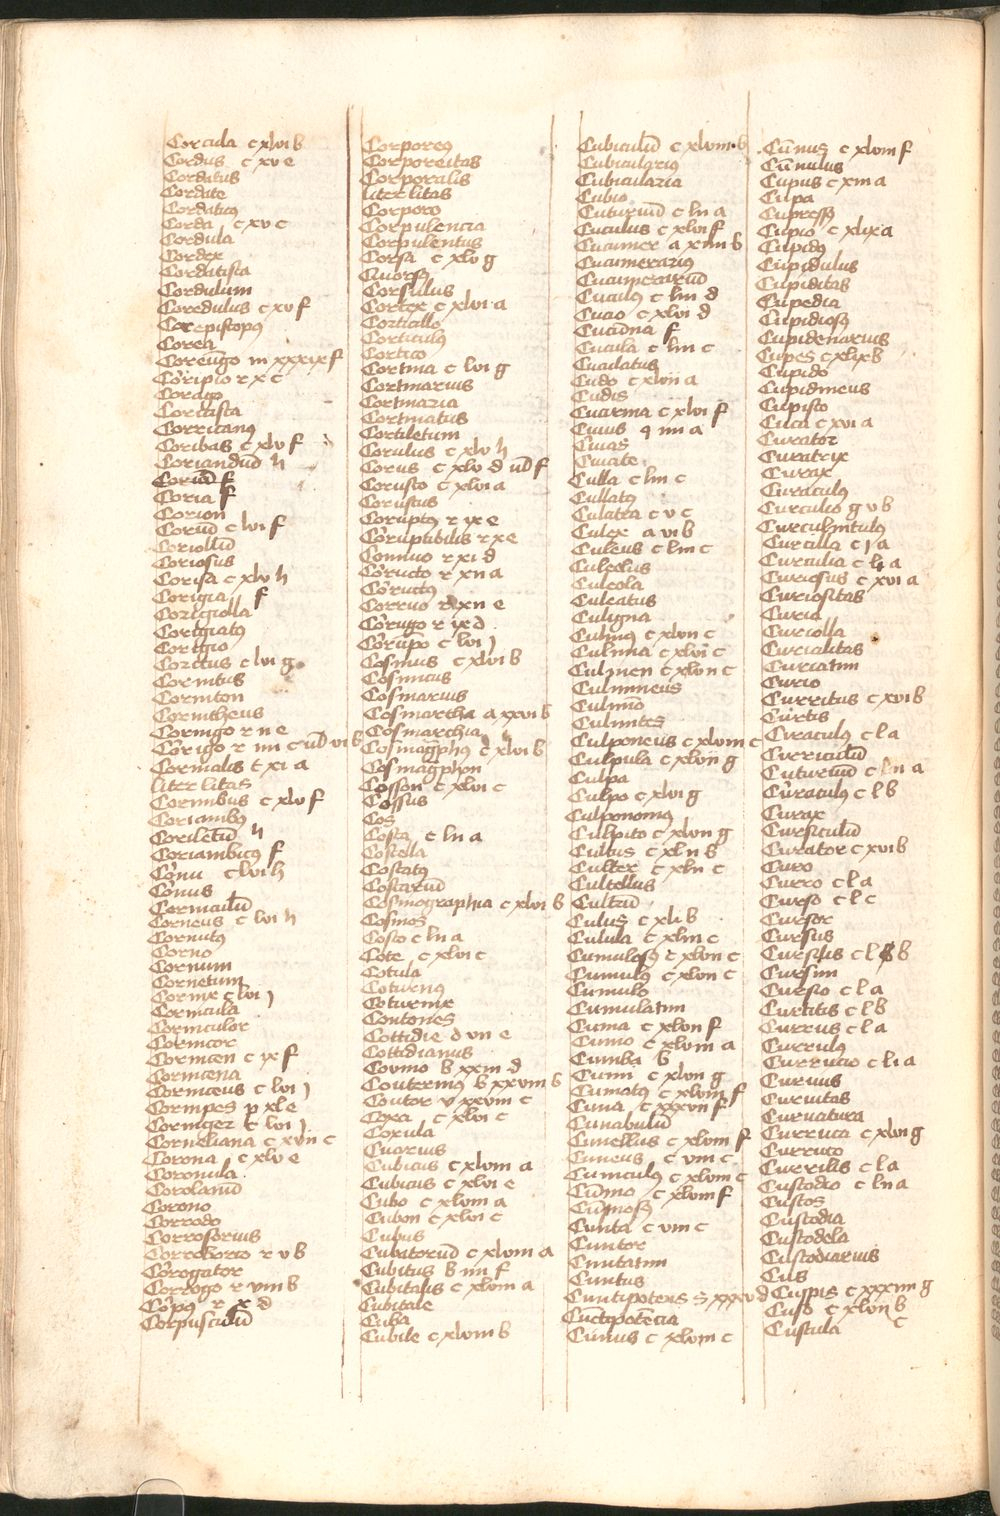 Corcula c xlvi b
Cordus c xv e
Cordatus
Cordate
Cordatus
Corda c xv c
Cordula
Cordex
Cordatista
Cordulum
Coredulus c xv f
Corepiscopus
Corea
Corripio r x c
Corago
Corricanus
Coribas c xlv f
Coriandrũ h
Coriũ f
Coria f
Corion
Coriũ c lvi f
Coriollũ
Coriosus
Corisa c xlv h
Corigia f
Corigiolla
Corigiatus
Corigio
Corintus
Corinton
Corintheus
Cornigo r n e
Cornalis t xi a
liter litas
Cornibus c xlv f
Coriambus
Coriletũ h
Coriambicus f
Cornu c lvi h
Cornus
Corniculũ
Corneus c lvi h
Cornutus
Corno
Cornum
Cornetum
Cornix c lvi j
Cornicula
Corniculor
Cornicor
Cornicen c ix f
Cornicena
Corniceus c lvi j
Cornipes p xl e
Corniger c lvi j
Corneliana c xvn c
Corona c xlv e
Coronula
Corolariũ
Corono
Corrodo
Corrosorius
Corroboro r v b
Corogator
Corrogo r vm b
Corpus r x d
Corpusculũ
Corporeus
Corporeitas
Corporalis
liter litas
Corporo
Corpulencia
Corpulentus
Corsa c xlv g
Quorsus
Corsulus
Cortex c xlvi a
Corticillo
Corticulus
Cortico
Cortina c lvi g
Cortinarius
Cortinaria
Cortinatus
Cortiletum
Corulus c xlv h
Corus c xlv d ul f
Corusco c xlvi a
Coruscus
Coruptus r ix e
Coruptibilis r x e
Corruo r xn e
Corrugo r ix d
Corrumpo c lvi j
Cosmus c xlvi b
Cosmicus
Cosmarius
Cosmartha a xxvi b
Cosmarchia
Cosmagraphus c xlvi b
Cosmagraphon
Cosson c xlvi c
Cossus
Cos
Costa c ln a
Costella
Costatus
Costarũ
Cosmographia c xlvi b
Cosmos
Costo c ln a
Cote c xlvi c
Cotula
Coturnus
Coturnix
Contones
Cottidie d vn e
Cottidianus
Covino b xxin d
Couternus b xxvm b
Coutor v xxvm c
Coxa c xlvi c
Coxula
Cuarius
Cubicus c xlvm a
Cubicus c xlvi e
Cubo c xlvm a
Cubon c xlvi c
Cubus
Cubitorũ c xlvm a
Cubitus b im f
Cubitalis c xlvm a
Cubitale
Cuba
Cubile c xlvm b
Cubiculũ c xlvm b
Cubicularius
Cubicularia
Cubio
Cuturnũ c ln a
Cuculus c xlvi f
Cucumer a xim b
Cucumerarius
Cucumerariũ
Cuculus c lm d
Cuco c xlvi d
Cuculla c lm c
Cuculatus
Cudo c xlvn a
Cudis
Cucurma c xlvi f
Cuius q im a
Cuias
Cuiate
Culla c lm c
Cullatus
Culatra c v c
Culex a vi b
Culeus c lm c
Culeolus
Culeola
Culeatus
Culigna
Culmus c xlvn c
Culmina c xlvi c
Culmen c xlvn c
Culmineus
Culmino
Culmites
Culponeus c xlvm c
Culpula c xlvn g
Culpa
Culpo c xlvi g
Culponomus
Culpito c xlvn g
Cultus c xln b
Culter c xln c
Cultellus
Cultrũ
Culus c xli b
Culula c xlm c
Cumulosus c xlvn c
Cumulus c xlvn c
Cumulo
Cumulatim
Cuma c xlvn f
Cumo c xlvm a
Cumba b
Cumi c xlvn g
Cumatus c xlvm f
Cuna c xxxvn f
Cunabulũ
Cunellus c xlvm f
Cuneus c vm c
Cuniculus c xlvm c
Cũnio c xlvm f
Cũnosus
Cunta c vm c
Cuntor
Cuntatim
Cuntus
Cuntipotens s xxxv d
Cũctipotẽcia
Cunus c xlvm c
Cũnus c xlvm f
Cũnulus
Cupus c xm a
Cupa
Cupressus
Cupio c xlix a
Cupidus
Cupidulus
Cupiditas
Cupedia
Cupidiosus
Cupidenarius
Cupes c xlix b
Cupido
Cupidineus
Cupisco
Cura c xvi a
Curator
Curatrix
Curax
Curaculus
Curculio g v b
Curculiũculus
Curcilla c j a
Curculia c li a
Curiosus c xvi a
Curiositas
Curia
Curiolla
Curialitas
Curiatim
Curio
Curritus c xvi b
Curtis
Curaculus c l a
Curriculũ
Cuturnũ c ln a
Curaculus c l b
Curax
Cursiculũ
Curator c xvi b
Curo
Curro c l a
Curso c l c
Cursor
Cursus
Cursilis c l b
Cursim
Cursio c l a
Curtitis c l b
Currus c l a
Currulus
Currucio c li a
Curuus
Curuitas
Curuatura
Curruca c xlvi g
Curruco
Currilis c l a
Custodio c ln a
Custos
Custodia
Custodela
Custodiarius
Cus
Cuspis c xxxim g
Cuso c xlvn b
Custula c